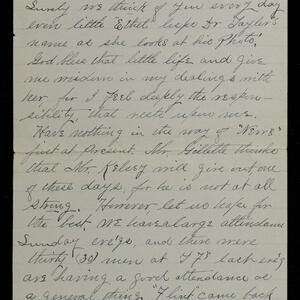 Surely we think of you every day
even little "Ethel" lisps Dr Taylor's
name as she looks at his Photo!
God bless that little life and give
me wisdom in my dealings with
her for I feel deeply the respon-
sibility that rests upon me.
Have nothing in the way of "News"
just at Present. Mr. Gillette thinks
that Mr. Kelsey will give out one
of these days, for he is not at all
strong. However, let us hope for
the best. We have a large attendance
Sunday eve'gs, and there were
thirty (30) men at last eve'g
are having a good attendance as
a general thing. "Flint" came back